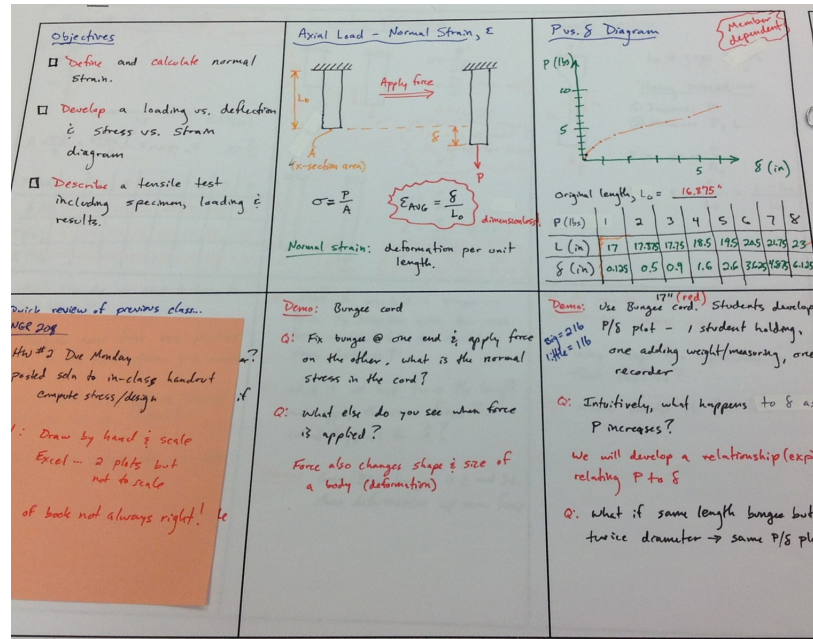 Objectives
Define and calculate normal
strain.
Develop a loading vs. deflection
& stress vs. strain
diagram
Describe a tensile test
including specimen, loading &
results.
Axial Load - Normal Strain, ε
Apply force
L₀
δ
A
(x-section area)
P
σ = P/A
ε AVG = δ/L₀
dimensionless
Normal strain: deformation per unit
length.
P vs. δ Diagram
Member
dependent
P (lbs)
10
5
5
δ (in)
Original length, L₀ = 16.875"
P (lbs) 1 2 3 4 5 6 7 8
L (in) 17 17.375 17.75 18.5 19.5 20.5 21.75 23
δ (in) 0.125 0.5 0.9 1.6 2.6 3.625 4.875 6.125
Quick review of previous class...
HW #2 Due Monday
posted soln to in-class handout
compute stress/design
?
if
Draw by hand & scale
Excel -- 2 plots but
not to scale
of book not always right!
Demo: Bungee cord
Q: Fix bungee @ one end & apply force
on the other. What is the normal
stress in the cord?
Q: What else do you see when force
is applied?
Force also changes shape & size of
a body (deformation)
17" (red)
Demo: Use Bungee cord. Students develop
Big = 2 lb
little = 1 lb
P/δ plot - 1 student holding,
one adding weight/measuring, one
recorder
Q: Intuitively, what happens to δ as
P increases?
We will develop a relationship (exp
relating P to δ
Q: What if same length bungee but
twice diameter → same P/δ pl